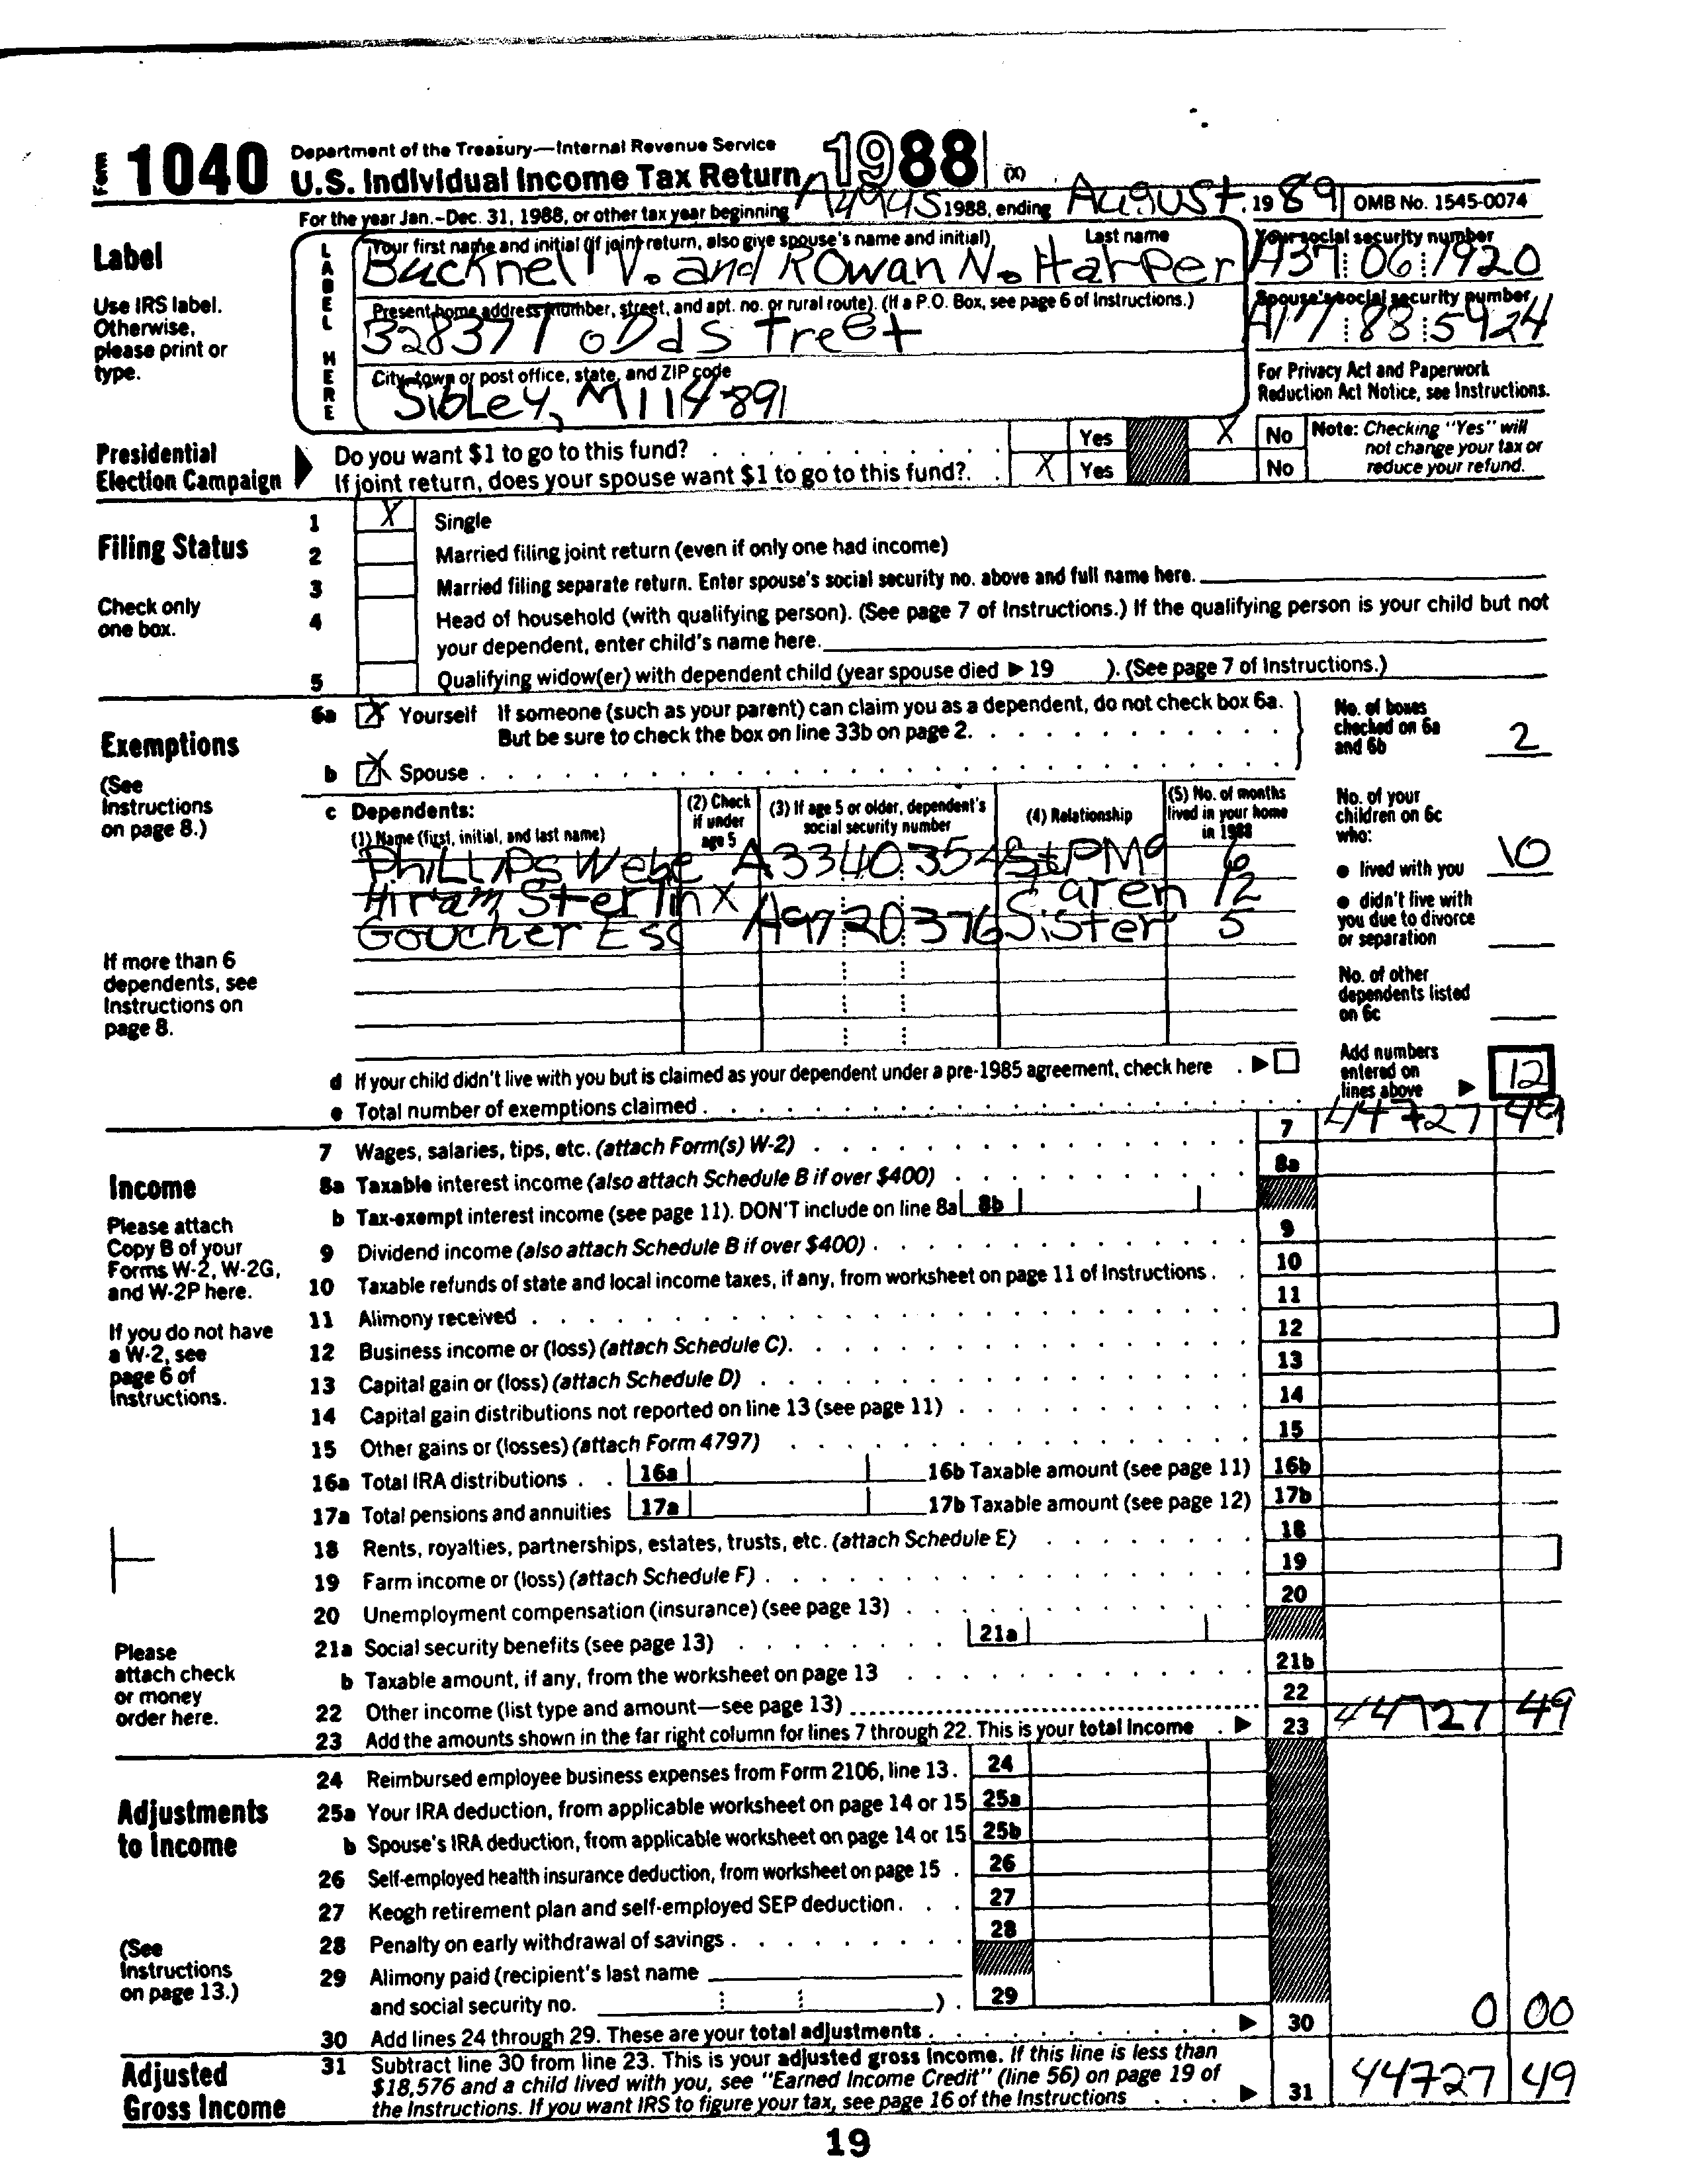 Form 1040 Department of the Treasury—Internal Revenue Service
U.S. Individual Income Tax Return 1988 (X)
For the year Jan.-Dec. 31, 1988, or other tax year beginning 1988, ending August, 19 89 OMB No. 1545-0074
Label
Use IRS label. Otherwise, please print or type.
LABEL HERE
Your first name and initial (if joint return, also give spouse's name and initial) Last name
Bucknell V. and Rowan N. Harper
Your social security number
A37 06 1920
Present home address (number, street, and apt. no. or rural route). (If a P.O. Box, see page 6 of Instructions.)
328371 oDdStreet
Spouse's social security number
A17 88 5924
City, town or post office, state, and ZIP code
SibLey, MI 14891
For Privacy Act and Paperwork Reduction Act Notice, see Instructions.
Presidential Election Campaign
Do you want $1 to go to this fund? Yes X No
If joint return, does your spouse want $1 to go to this fund? X Yes No
Note: Checking "Yes" will not change your tax or reduce your refund.
Filing Status
Check only one box.
1 X Single
2 Married filing joint return (even if only one had income)
3 Married filing separate return. Enter spouse's social security no. above and full name here.
4 Head of household (with qualifying person). (See page 7 of Instructions.) If the qualifying person is your child but not
your dependent, enter child's name here.
5 Qualifying widow(er) with dependent child (year spouse died ▶ 19 ). (See page 7 of Instructions.)
Exemptions
(See Instructions on page 8.)
6a X Yourself If someone (such as your parent) can claim you as a dependent, do not check box 6a.
But be sure to check the box on line 33b on page 2.
b X Spouse
No. of boxes checked on 6a and 6b 2
c Dependents:
(1) Name (first, initial, and last name)
(2) Check if under age 5
(3) If age 5 or older, dependent's social security number
(4) Relationship
(5) No. of months lived in your home in 1988
PhiLLIPS Webe A33403545 6
Hiram Sterlin X aren 12
Goucher Ess A97 20 376 Sister 5
No. of your children on 6c who:
● lived with you 10
● didn't live with you due to divorce or separation
No. of other dependents listed on 6c
If more than 6 dependents, see Instructions on page 8.
d If your child didn't live with you but is claimed as your dependent under a pre-1985 agreement, check here ▶
e Total number of exemptions claimed
Add numbers entered on lines above ▶ 12
Income
Please attach Copy B of your Forms W-2, W-2G, and W-2P here.
If you do not have a W-2, see page 6 of Instructions.
Please attach check or money order here.
7 Wages, salaries, tips, etc. (attach Form(s) W-2) 7 44727 49
8a Taxable interest income (also attach Schedule B if over $400) 8a
b Tax-exempt interest income (see page 11). DON'T include on line 8a 8b
9 Dividend income (also attach Schedule B if over $400) 9
10 Taxable refunds of state and local income taxes, if any, from worksheet on page 11 of Instructions 10
11 Alimony received 11
12 Business income or (loss) (attach Schedule C) 12
13 Capital gain or (loss) (attach Schedule D) 13
14 Capital gain distributions not reported on line 13 (see page 11) 14
15 Other gains or (losses) (attach Form 4797) 15
16a Total IRA distributions 16a 16b Taxable amount (see page 11) 16b
17a Total pensions and annuities 17a 17b Taxable amount (see page 12) 17b
18 Rents, royalties, partnerships, estates, trusts, etc. (attach Schedule E) 18
19 Farm income or (loss) (attach Schedule F) 19
20 Unemployment compensation (insurance) (see page 13) 20
21a Social security benefits (see page 13) 21a
b Taxable amount, if any, from the worksheet on page 13 21b
22 Other income (list type and amount—see page 13) 22
23 Add the amounts shown in the far right column for lines 7 through 22. This is your total income ▶ 23 44727 49
Adjustments to Income
(See Instructions on page 13.)
24 Reimbursed employee business expenses from Form 2106, line 13. 24
25a Your IRA deduction, from applicable worksheet on page 14 or 15 25a
b Spouse's IRA deduction, from applicable worksheet on page 14 or 15 25b
26 Self-employed health insurance deduction, from worksheet on page 15 26
27 Keogh retirement plan and self-employed SEP deduction 27
28 Penalty on early withdrawal of savings 28
29 Alimony paid (recipient's last name
and social security no. ) 29
30 Add lines 24 through 29. These are your total adjustments ▶ 30 0 00
Adjusted Gross Income
31 Subtract line 30 from line 23. This is your adjusted gross income. If this line is less than
$18,576 and a child lived with you, see "Earned Income Credit" (line 56) on page 19 of
the Instructions. If you want IRS to figure your tax, see page 16 of the Instructions ▶ 31 44727 49
19